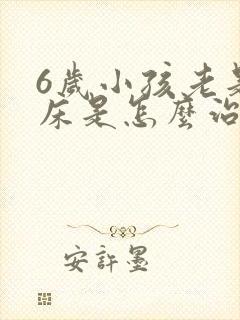 6歲小孩老是
床是怎麼治
安許墨